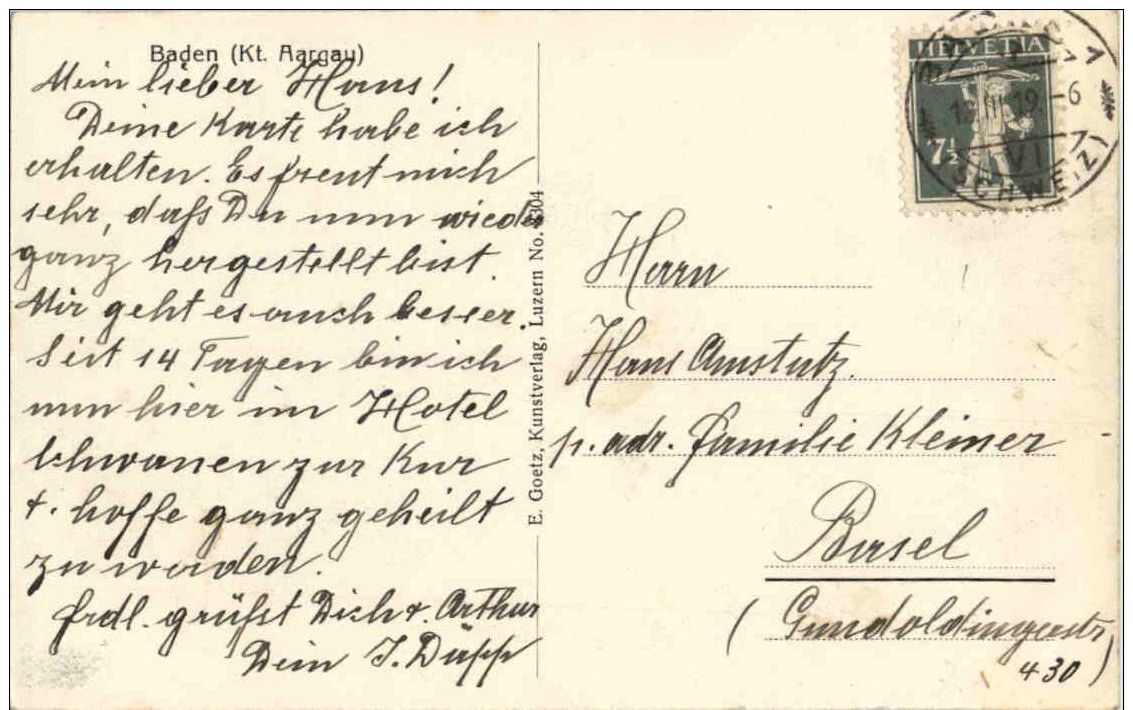 Baden (Kt. Aargau)
Mein lieber Hans!
Deine Karte habe ich
erhalten. Es freut mich
sehr, dass Du nun wieder
ganz hergestellt bist.
Mir geht es auch besser.
Seit 14 Tagen bin ich
nun hier im Hotel
Schwanen zur Kur
+. hoffe ganz geheilt
zu werden.
frdl. grüsst Dich +. Arthur
Dein J. Düpp
E. Goetz, Kunstverlag, Luzern No.
HELVETIA
7½
III 19.-6
VI
(SCHWEIZ)
Herrn
Hans Amstutz.
p. adr. Familie Kleiner
Basel
(Gundoldingerstr,
430)